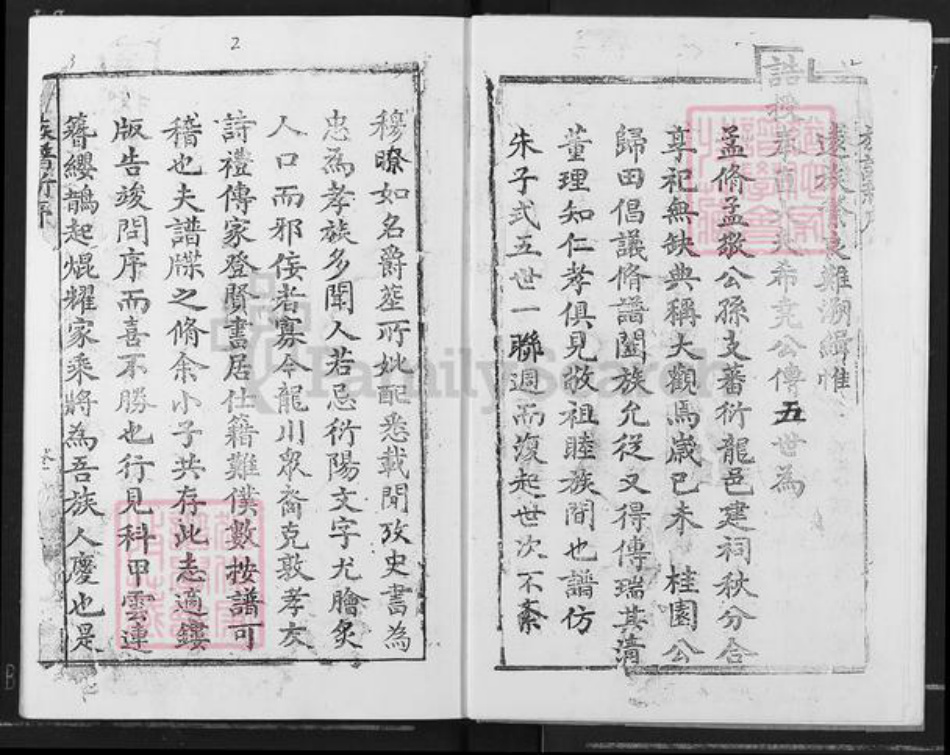 遠族
難溯緝惟
誥授
希堯公傳五世為
孟脩孟敬公孫支蕃衍龍邑建祠秋分合
享祀無缺典稱大觀焉歲已未 桂園公
歸田倡議脩譜闔族允從又得傅瑞其清
董理知仁孝俱見敬祖睦族間也譜仿
朱子式五世一聯週而復起世次不紊
2
穆瞭如名爵塟所妣配悉載聞攷史書為
忠為孝族多聞人若忌衍陽文字尤膾炙
人口而邪佞者寡今龍川眾裔克敦孝友
詩禮傳家登賢書居仕籍難僕數按譜可
稽也夫譜牒之脩余小子共存此志適鏤
版告竣問序而喜不勝也行見科甲雲連
簪纓鵲起焜耀家乘將為吾族人慶也是
族譜新序
FamilySearch